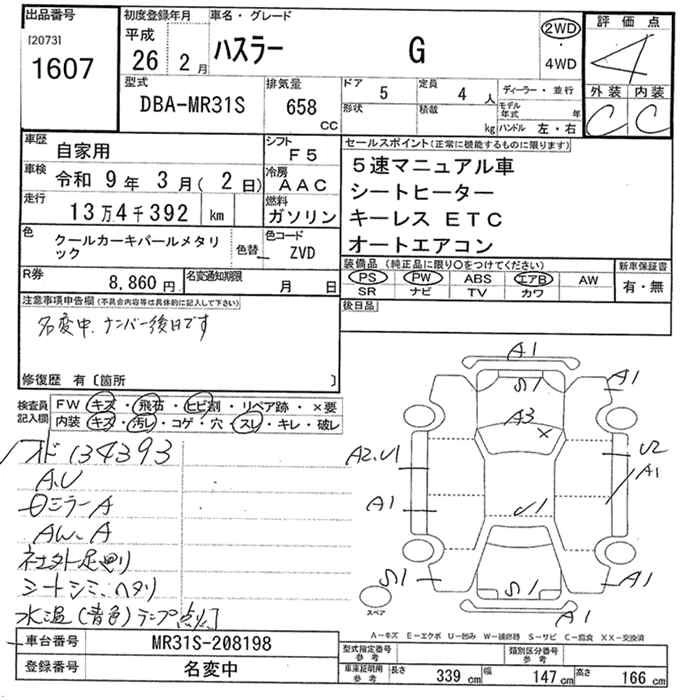 出品番号
[2073]
1607
初度登録年月
平成
26年 2月
車名・グレード
ハスラー G
2WD
・
4WD
評価点
4
外装 内装
C C
型式
DBA-MR31S
排気量
658 CC
ドア 5
定員 4人
形状
積載 kg
ディーラー・並行
モデル年式 年
ハンドル 左・右
車歴
自家用
シフト
F5
車検
令和 9年 3月( 2日)
冷房
AAC
走行
13万4千392 km
燃料
ガソリン
色
クールカーキパールメタリック
色替
色コード
ZVD
R券 8,860円
名変通知期限 月 日
セールスポイント(正常に機能するものに限ります)
5速マニュアル車
シートヒーター
キーレス ETC
オートエアコン
装備品 (純正品に限り○をつけてください)
PS PW ABS エアB AW
SR ナビ TV カワ
新車保証書
有・無
後日品
注意事項申告欄(不具合内容等は具体的に記入して下さい)
名変中、ナンバー後日です
修復歴 有〔箇所 〕
検査員記入欄
FW キズ・飛石・ヒビ割・リペア跡・×要
内装 キズ・汚レ・コゲ・穴・スレ・キレ・破レ
メド 134393
A.U
ミラーA
AW、A
社外足廻り
シートシミ、ヘタリ
水温(青色)ランプ点灯
A1
S1
A1
A3
A2.U1
U2
A1
A1
U1
S1
S1
A1
A1
スペア
A-キズ E-エクボ U-凹み W-補修跡 S-サビ C-腐食 XX-交換済
車台番号 MR31S-208198
登録番号 名変中
型式指定番号 参考
類別区分番号 参考
車庫証明用 参考
長さ 339 cm 幅 147 cm 高さ 166 cm